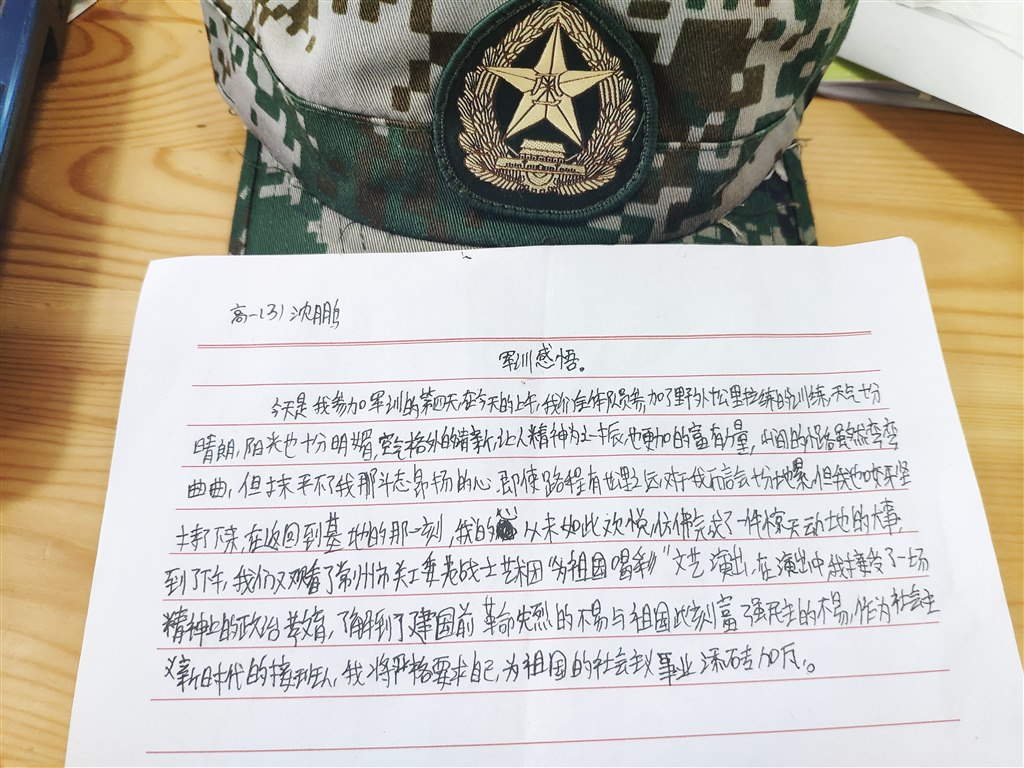 八一
高一(3) 沈鹏
军训感悟。
今天是我参加军训的第四天,在今天的上午,我们全体队员参加了野外十公里拉练的训练,天气十分
晴朗,阳光也十分明媚,空气格外的清新,让人精神为之一振后,也更加的富有力量,山间的小路虽然弯弯
曲曲,但抹平不了我那斗志昂扬的心.即使路程有七里之远对于我而言会十分地累,但我也咬牙坚
持了下来,在返回到基地的那一刻,我的心从未如此欢悦,仿佛完成了一件惊天动地的大事,
到了下午,我们又观看了常州市关工委老战士艺术团“为祖国喝彩”文艺演出,在演出中,我接受了一场
精神上的政治教育,了解到了建国前革命先烈的不易与祖国此刻富强民主的不易,作为社会主
义新时代的接班人,我将严格要求自己,为祖国的社会主义事业添砖加瓦。